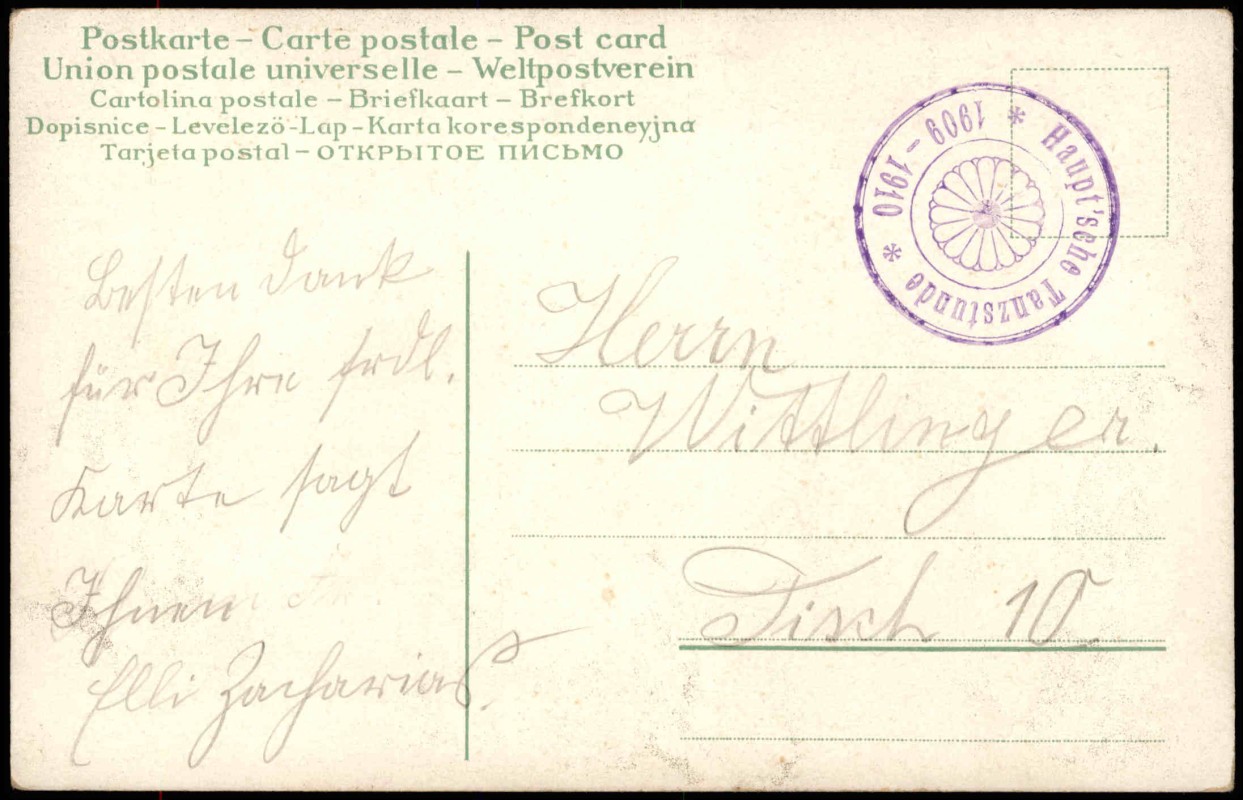 Postkarte – Carte postale – Post card
Union postale universelle – Weltpostverein
Cartolina postale – Briefkaart – Brefkort
Dopisnice - Levelezö-Lap - Karta korespondeneyjna
Tarjeta postal – ОТКРЫТОЕ ПИСЬМО
* Haupt'sche Tanzstunde * 1909 – 1910
Besten Dank
für Ihre frdl.
Karte sagt
Ihnen
Elli Zacharias.
Herrn
Wittlinger.
Tisch 10.